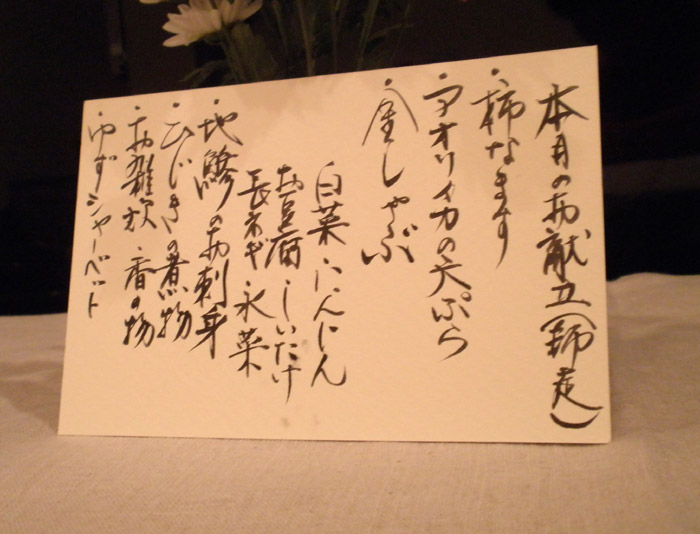 本日のお献立(師走)
・柿なます
・アオリイカの天ぷら
・金しゃぶ
白菜・にんじん
お豆腐・しいたけ
長ネギ 水菜
・地鯵のお刺身
・ひじきの煮物
・お雑炊・香の物
・ゆずシャーベット